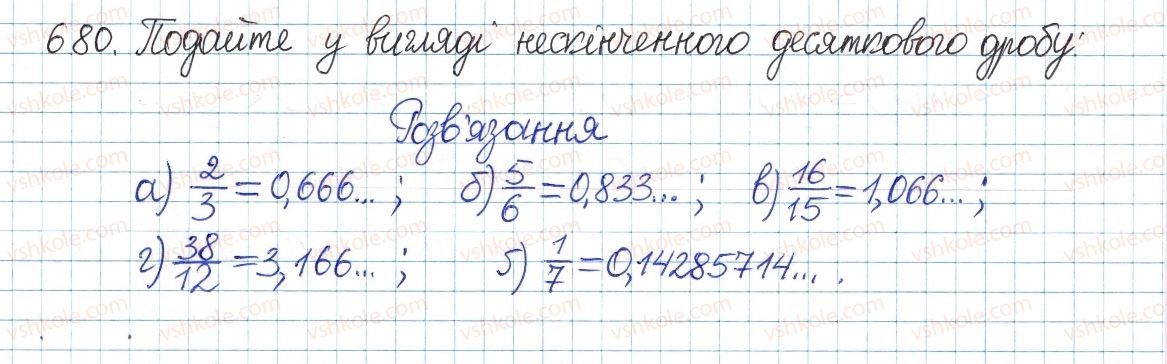 680. Подайте у вигляді нескінченного десяткового дробу:
Розв'язання
а) 2/3 = 0,666...; б) 5/6 = 0,833...; в) 16/15 = 1,066...;
г) 38/12 = 3,166...; ґ) 1/7 = 0,14285714... .